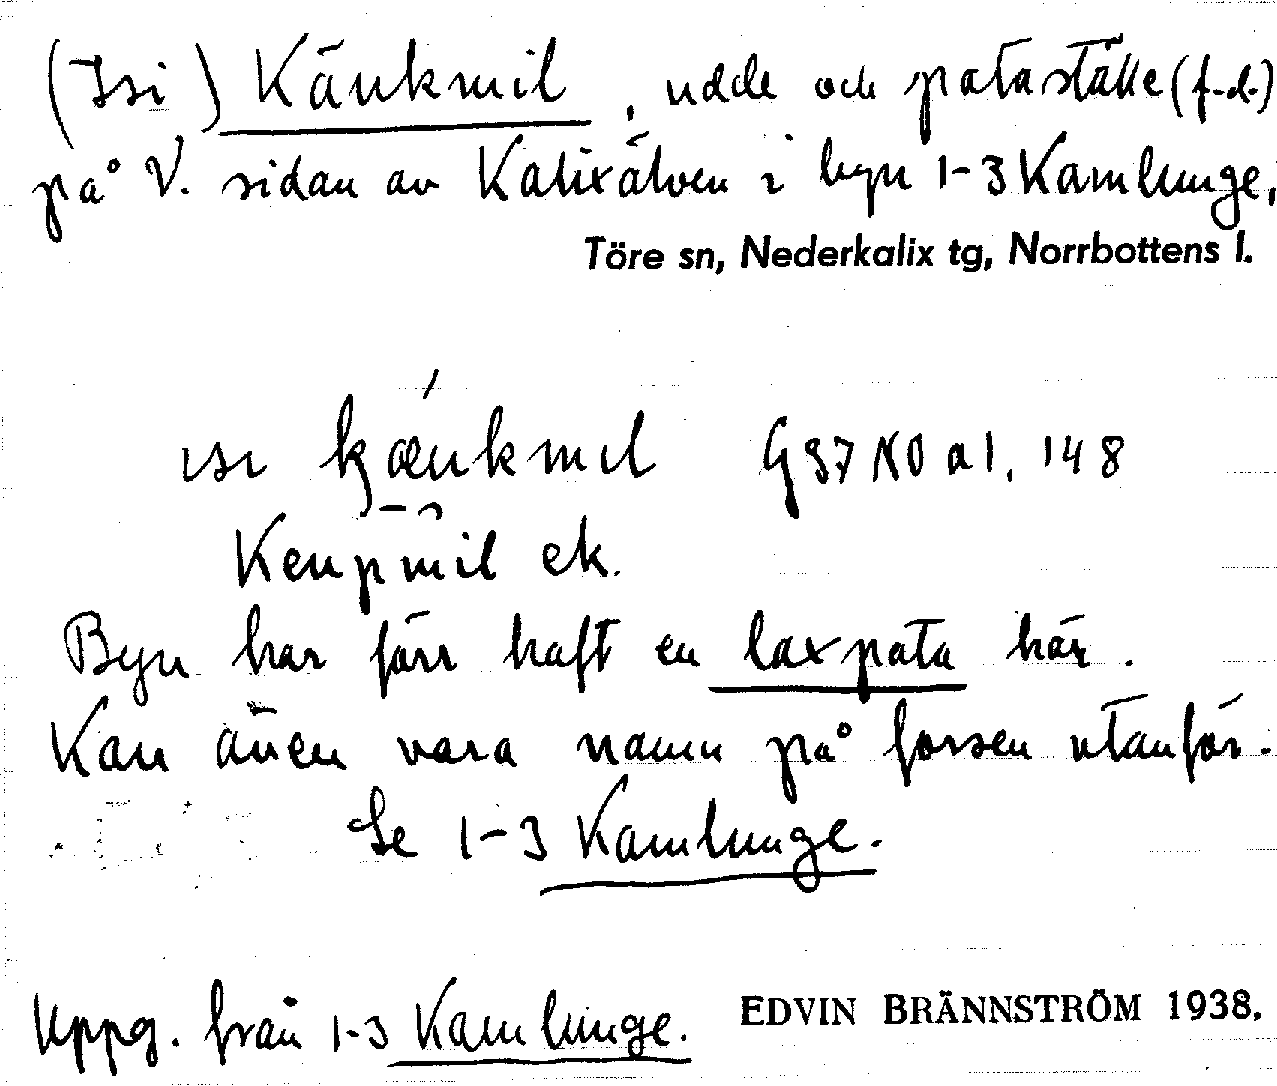 (Isi) Känkmil, udde och pataställe (f.d.)
på V. sidan av Kalixälven i byn 1-3 Kamlunge,
Töre sn, Nederkalix tg, Norrbottens l.
ısı kænkmıl G 37 NO a 1, 148
Kenpmil ek.
Byn har förr haft en laxpata här.
Kan även vara namn på forsen utanför.
Se 1-3 Kamlunge.
Uppg. från 1-3 Kamlunge. EDVIN BRÄNNSTRÖM 1938.